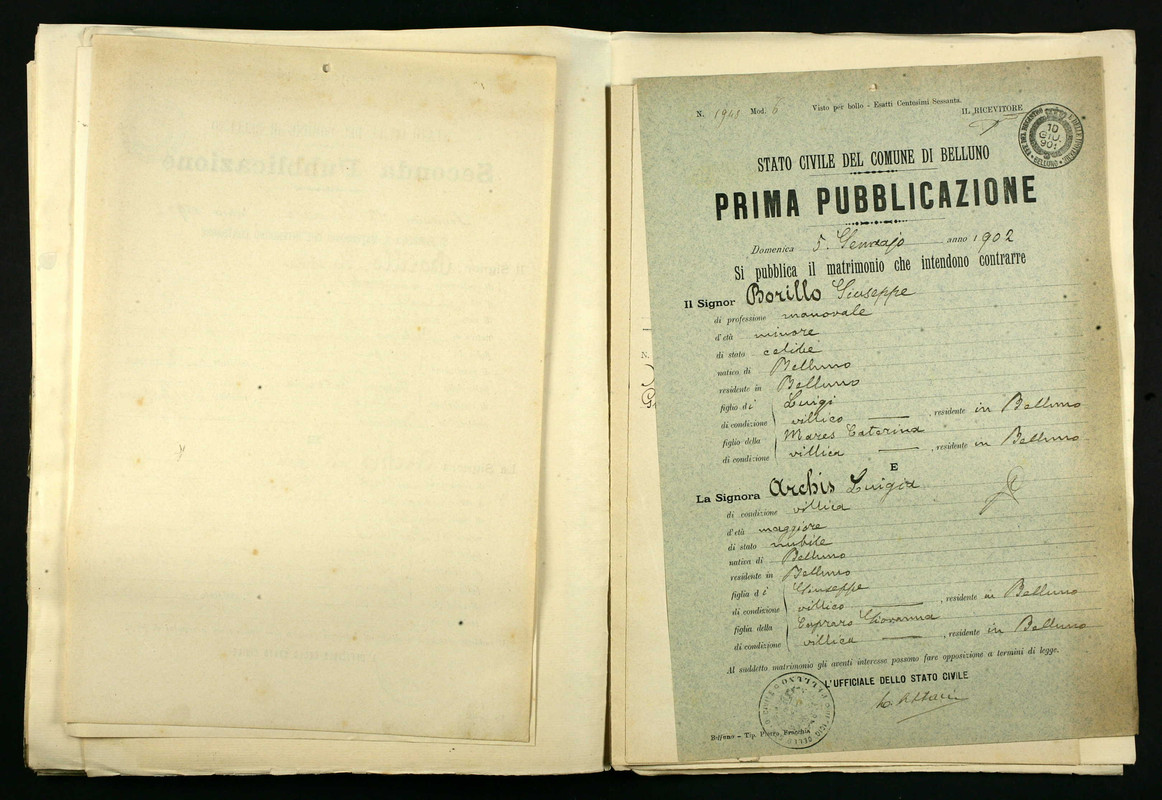 N. 1948 Mod. 6 Visto per bollo - Esatti Centesimi Sessanta.
IL RICEVITORE
10
GIU.
901
BELLUNO
STATO CIVILE DEL COMUNE DI BELLUNO
PRIMA PUBBLICAZIONE
Domenica 5. Gennajo anno 1902
Si pubblica il matrimonio che intendono contrarre
Il Signor Borillo Giuseppe
di professione manovale
d'età minore
di stato celibe
nativo di Belluno
residente in Belluno
figlio di Luigi
di condizione villico , residente in Belluno
figlio della Mares Caterina
di condizione villica , residente in Belluno
E
La Signora Archis Luigia
di condizione villica
d'età maggiore
di stato nubile
nativa di Belluno
residente in Belluno
figlia di Giuseppe
di condizione villico , residente in Belluno
figlia della Capraro Giovanna
di condizione villica , residente in Belluno
Al suddetto matrimonio gli aventi interesse possono fare opposizione a termini di legge.
L'UFFICIALE DELLO STATO CIVILE
Belluno - Tip. Pietro Fracchia
N.
Seconda Pubblicazione
Il Signor
La Signora